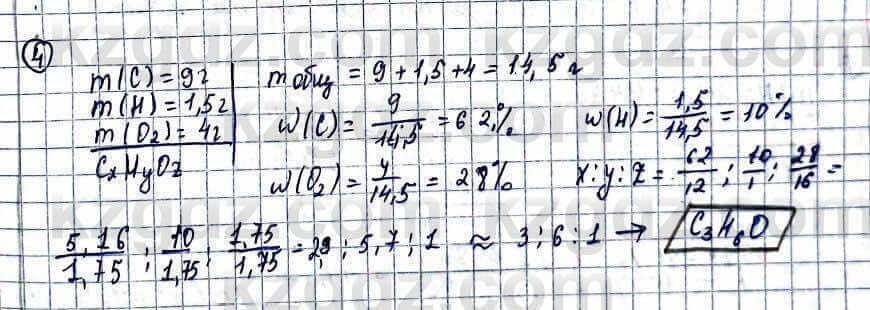 ④
m(C) = 9г
m(H) = 1,5г
m(O₂) = 4г
CxHyOz
m общ = 9 + 1,5 + 4 = 14,5 г
w(C) = 9/14,5 = 62%
w(H) = 1,5/14,5 = 10%
w(O₂) = 4/14,5 = 28%
x : y : z = 62/12 ; 10/1 ; 28/16 =
5,16/1,75 ; 10/1,75 ; 1,75/1,75 = 2,9 ; 5,7 ; 1 ≈ 3 ; 6 : 1 → C₃H₆O
kzgdz.com